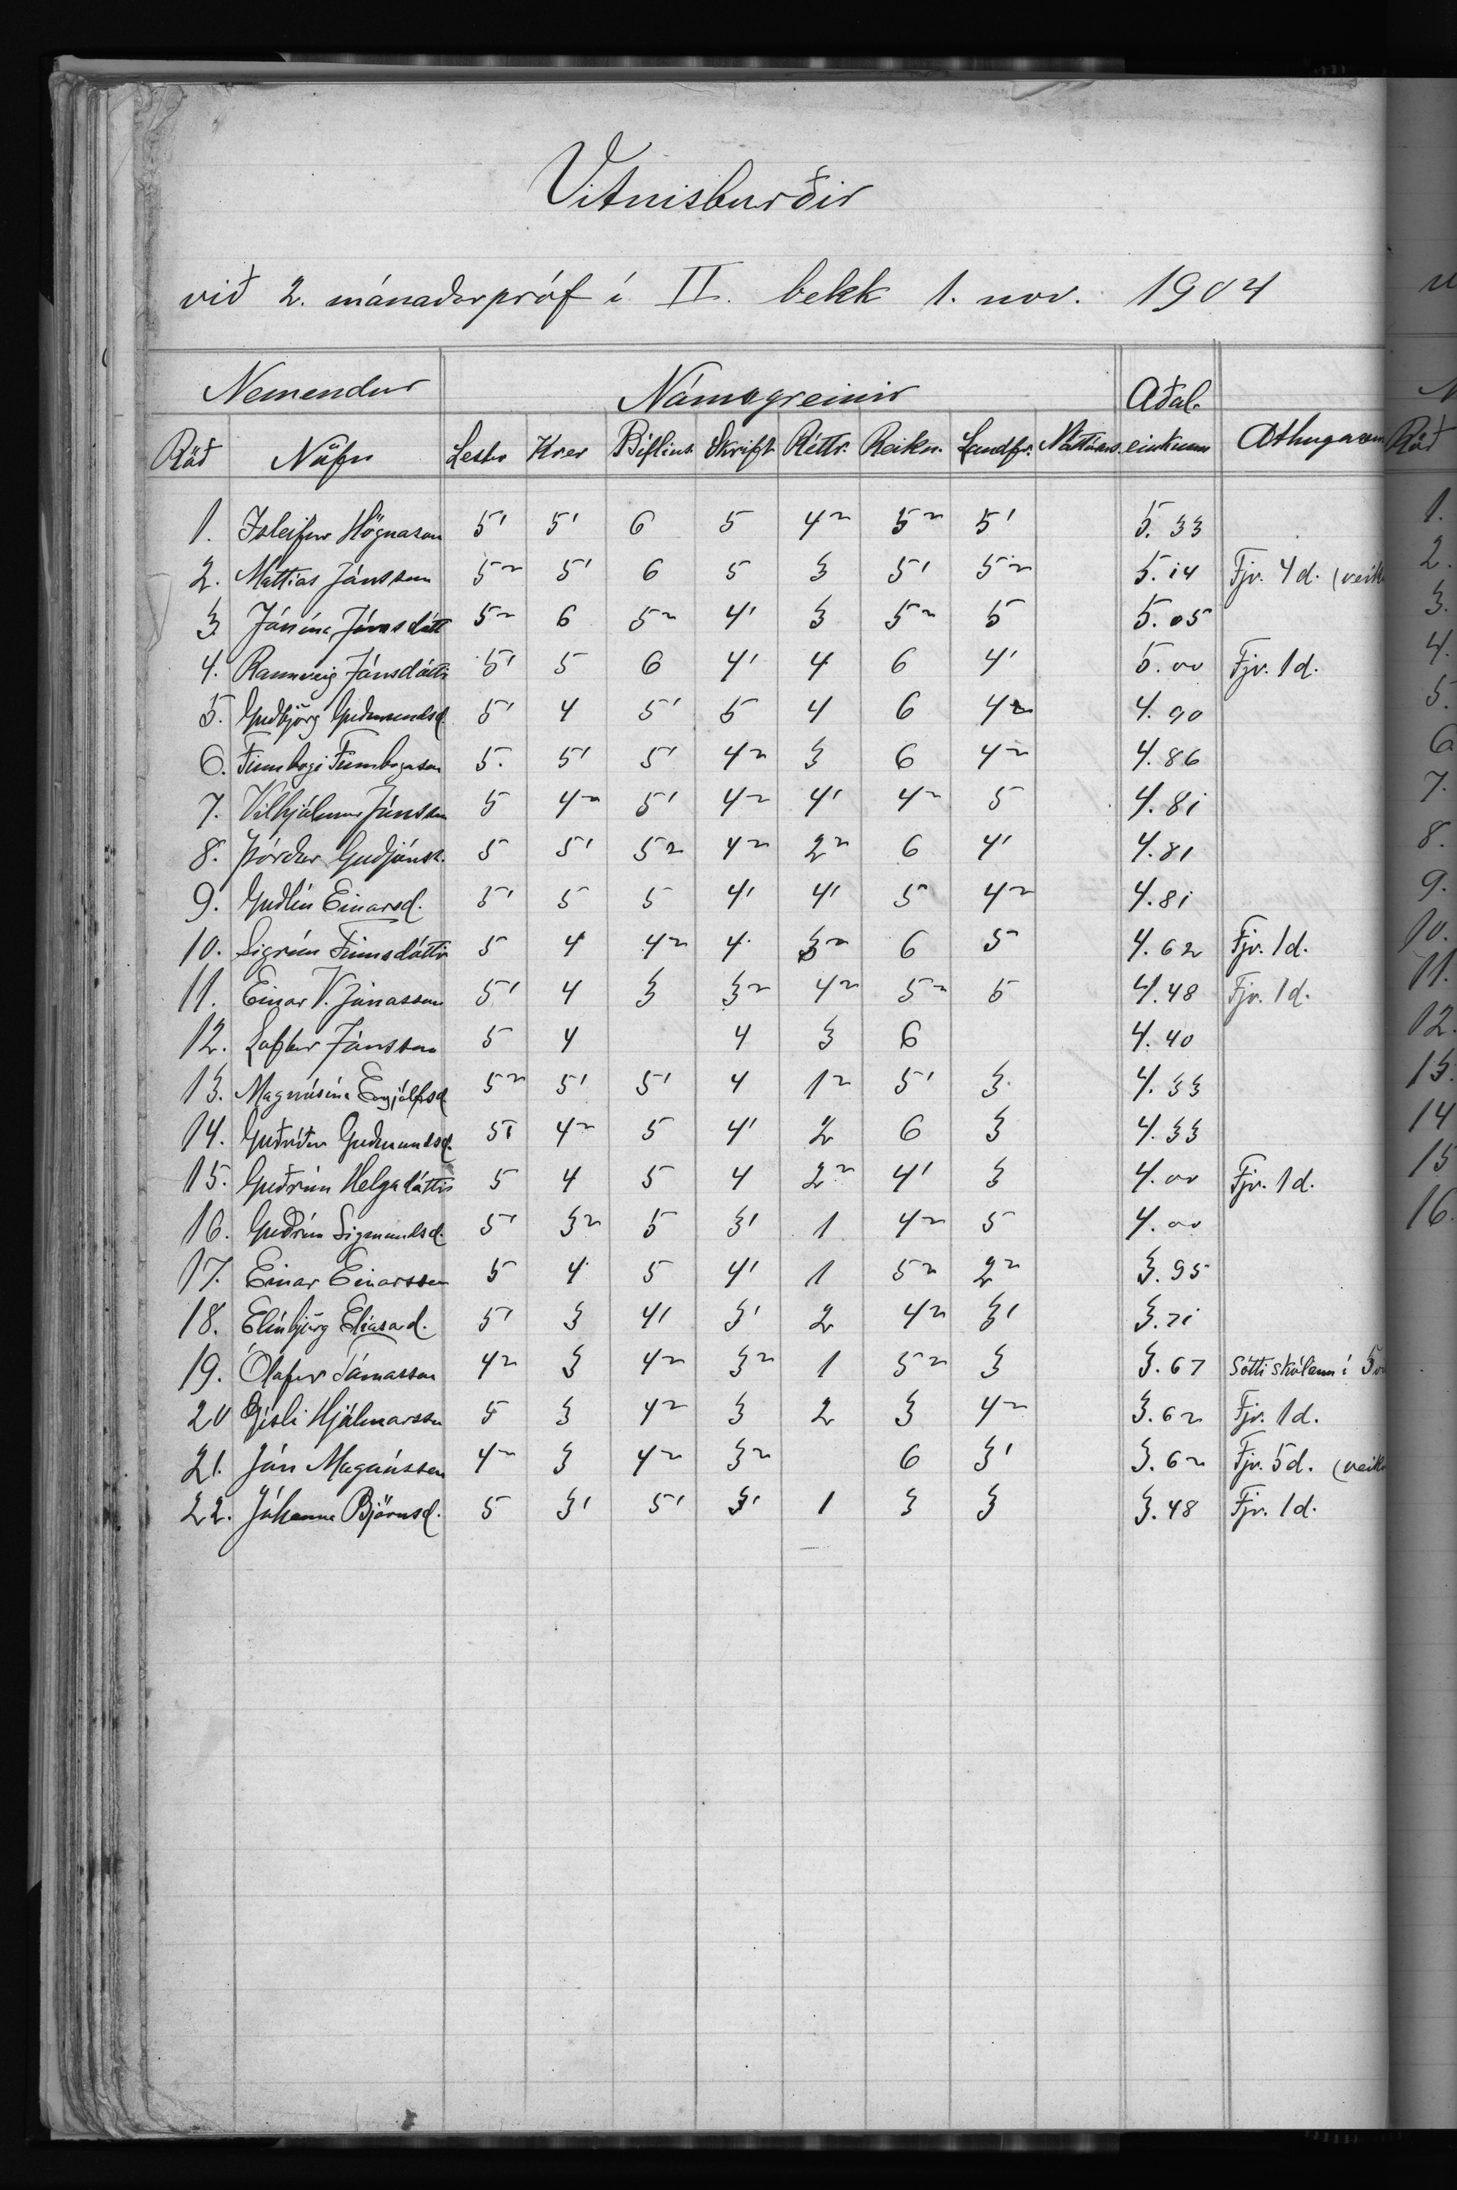 Vitnisburðir
við 2. mánaðarpróf í II. bekk 1. nov. 1904
Nemendur Námsgreinir Aðal-
Röð Nöfn Lestr Kver Biflíus. Skrift Réttr. Reikn. Landfr. Náttúrus. einkunn Athugasem
1. Ísleifur Högnason 5¹ 5¹ 6 5 4² 5² 5¹ 5.33
2. Mattías Jónsson 5² 5¹ 6 5 3 5¹ 5² 5.14 Fjv. 4 d. (veik
3. Jónína Jónsdótt 5² 6 5² 4¹ 3 5² 5 5.05
4. Rannveig Jónsdóttir 5¹ 5 6 4¹ 4 6 4¹ 5.00 Fjv. 1 d.
5. Guðbjörg Guðmundsd. 5¹ 4 5¹ 5 4 6 4² 4.90
6. Finnbogi Finnbogason 5. 5¹ 5¹ 4² 3 6 4² 4.86
7. Vilhjálmur Jónsson 5 4² 5¹ 4² 4¹ 4² 5 4.81
8. Þórður Guðjónss. 5 5¹ 5² 4² 2² 6 4¹ 4.81
9. Guðlín Einarsd. 5¹ 5 5 4¹ 4¹ 5 4² 4.81
10. Sigrún Finnsdóttir 5 4 4² 4 3² 6 5 4.62 Fjv. 1 d.
11. Einar V. Jónasson 5¹ 4 3 3² 4² 5² 5 4.48 Fjv. 1 d.
12. Loftur Jónsson 5 4 4 3 6 4.40
13. Magnúsína Eyjólfsd. 5² 5¹ 5¹ 4 1² 5¹ 3 4.33
14. Guðríður Guðmundsd. 5¹ 4² 5 4¹ 2 6 3 4.33
15. Guðrún Helgadóttir 5 4 5 4 2² 4¹ 3 4.00 Fjv. 1 d.
16. Guðrún Sigmundsd. 5¹ 3² 5 3¹ 1 4² 5 4.00
17. Einar Einarsson 5 4 5 4¹ 1 5² 2² 3.95
18. Elínbjörg Elíasard. 5¹ 3 4¹ 3¹ 2 4² 3¹ 3.71
19. Ólafur Tómasson 4² 3 4² 3² 1 5² 3 3.67 Sótti skólann í 5
20 Gísli Hjálmarsson 5 3 4² 3 2 3 4² 3.62 Fjv. 1 d.
21. Jón Magnússon 4² 3 4² 3² 6 3¹ 3.62 Fjv. 5 d. (veik
22. Jóhanna Björnsd. 5 3¹ 5¹ 3¹ 1 3 3 3.48 Fjv. 1 d.
Röð
1.
2.
3.
4.
5.
6
7.
8.
9.
10.
11.
12.
13.
14
15
16.